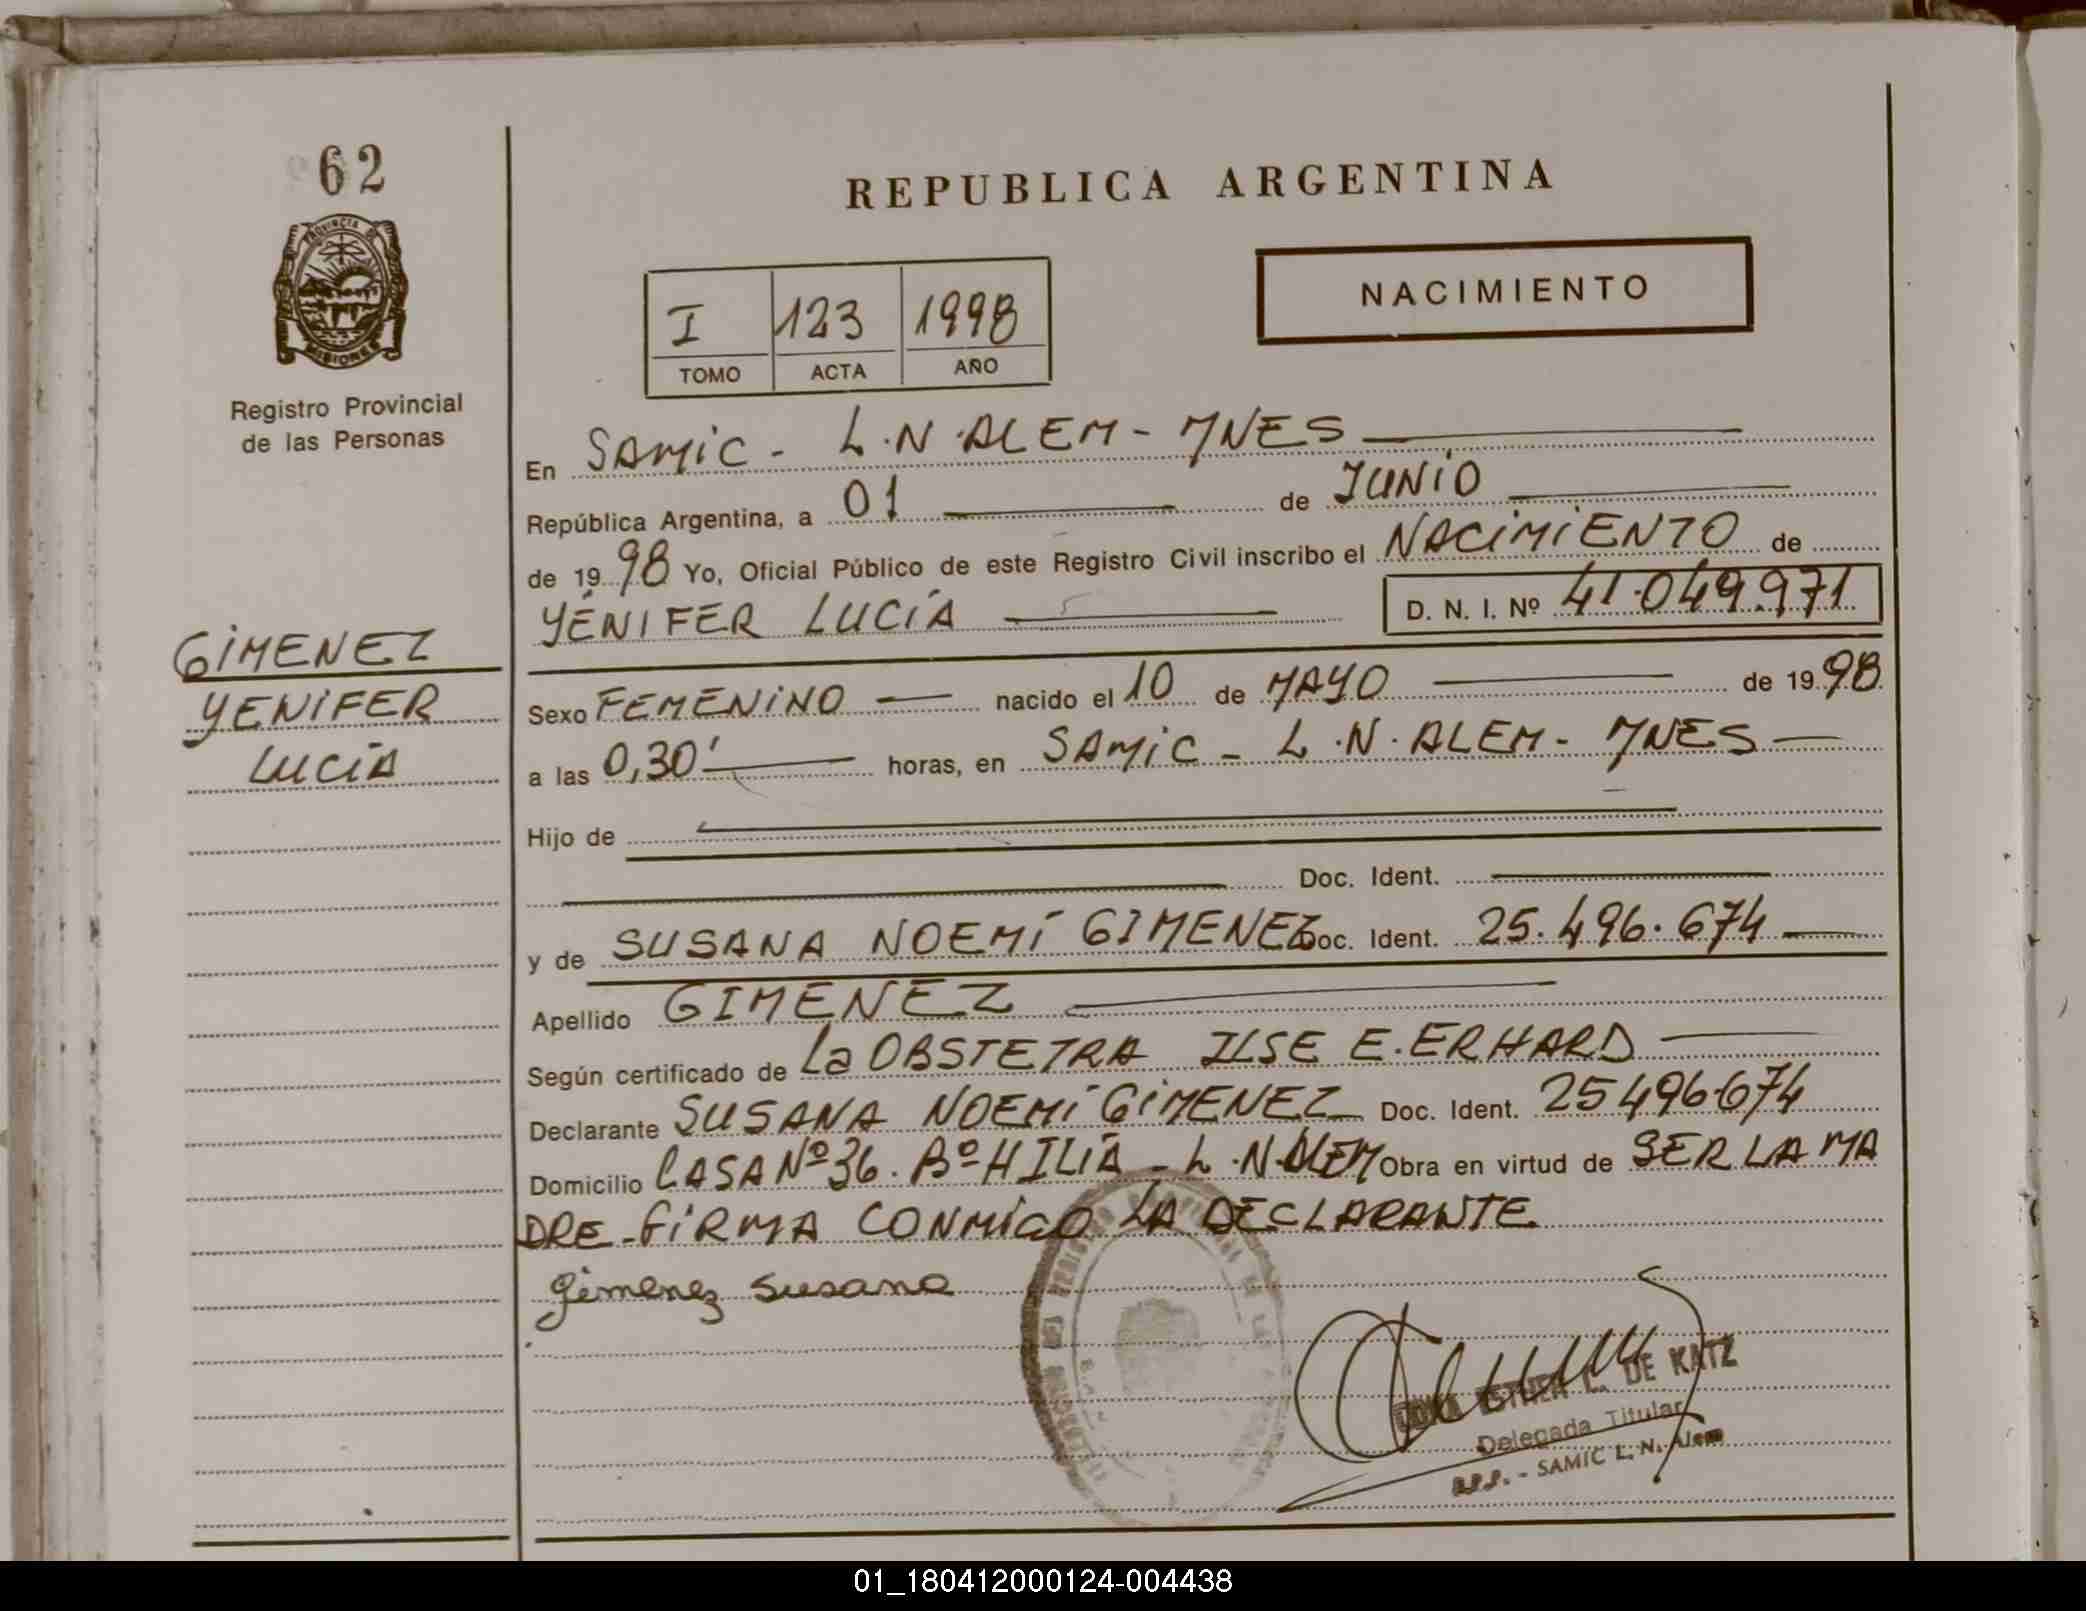 62
REPUBLICA ARGENTINA
NACIMIENTO
PROVINCIA DE
MISIONES
Registro Provincial
de las Personas
I 123 1998
TOMO ACTA AÑO
En SAMIC - L.N.ALEM - MNES
República Argentina, a 01 de JUNIO
de 1998 Yo, Oficial Público de este Registro Civil inscribo el NACIMIENTO de
YÉNIFER LUCÍA D. N. I. Nº 41.049.971
GIMENEZ
YENIFER
LUCÍA
Sexo FEMENINO nacido el 10 de MAYO de 1998
a las 0,30' horas, en SAMIC - L.N.ALEM - MNES
Hijo de
Doc. Ident.
y de SUSANA NOEMÍ GIMENEZ Doc. Ident. 25.496.674
Apellido GIMENEZ
Según certificado de La OBSTETRA ILSE E. ERHARD
Declarante SUSANA NOEMÍ GIMENEZ Doc. Ident. 25496.674
Domicilio CASA Nº 36. Bº HILIA - L.N.ALEM Obra en virtud de SER LA MA
DRE - FIRMA CONMIGO LA DECLARANTE
Gimenez Susana
ESTHER L. DE KATZ
Delegada Titular
R.P.P. - SAMIC L. N. Alem
01_180412000124-004438